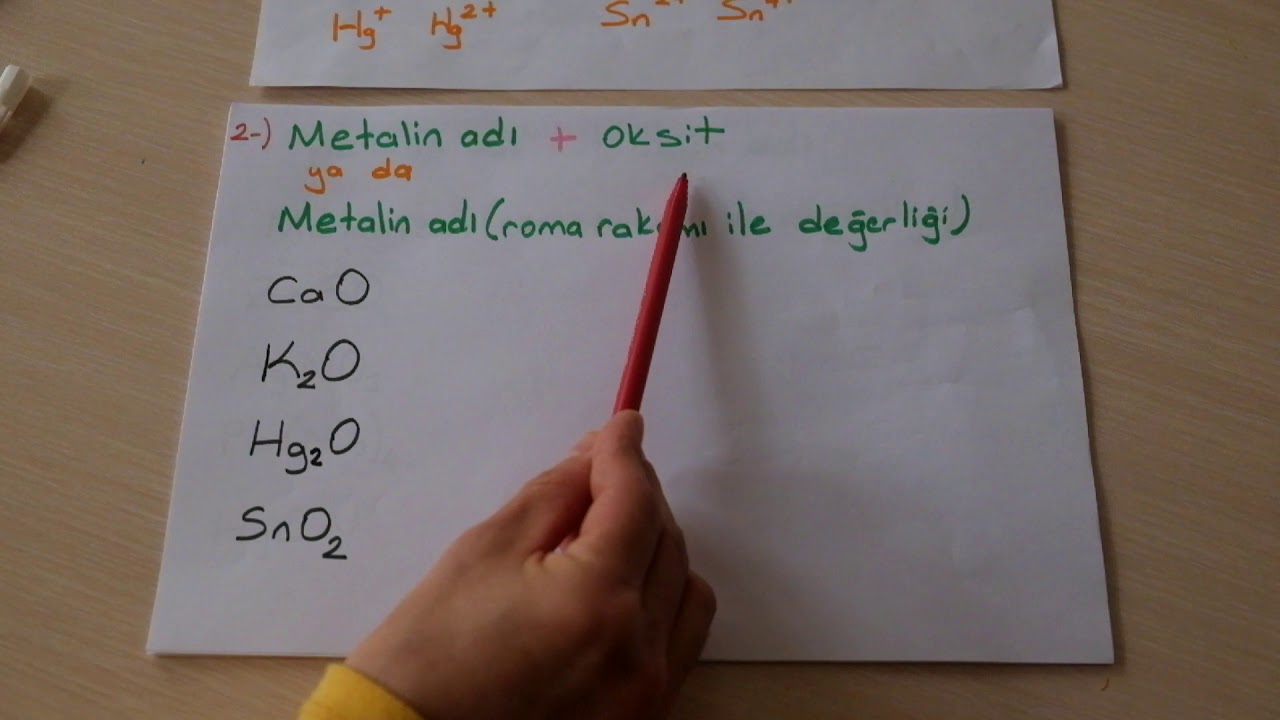 Hg⁺ Hg²⁺ Sn²⁺ Sn
2-) Metalin adı + oksit
ya da
Metalin adı (roma rakamı ile değerliği)
CaO
K₂O
Hg₂O
SnO₂